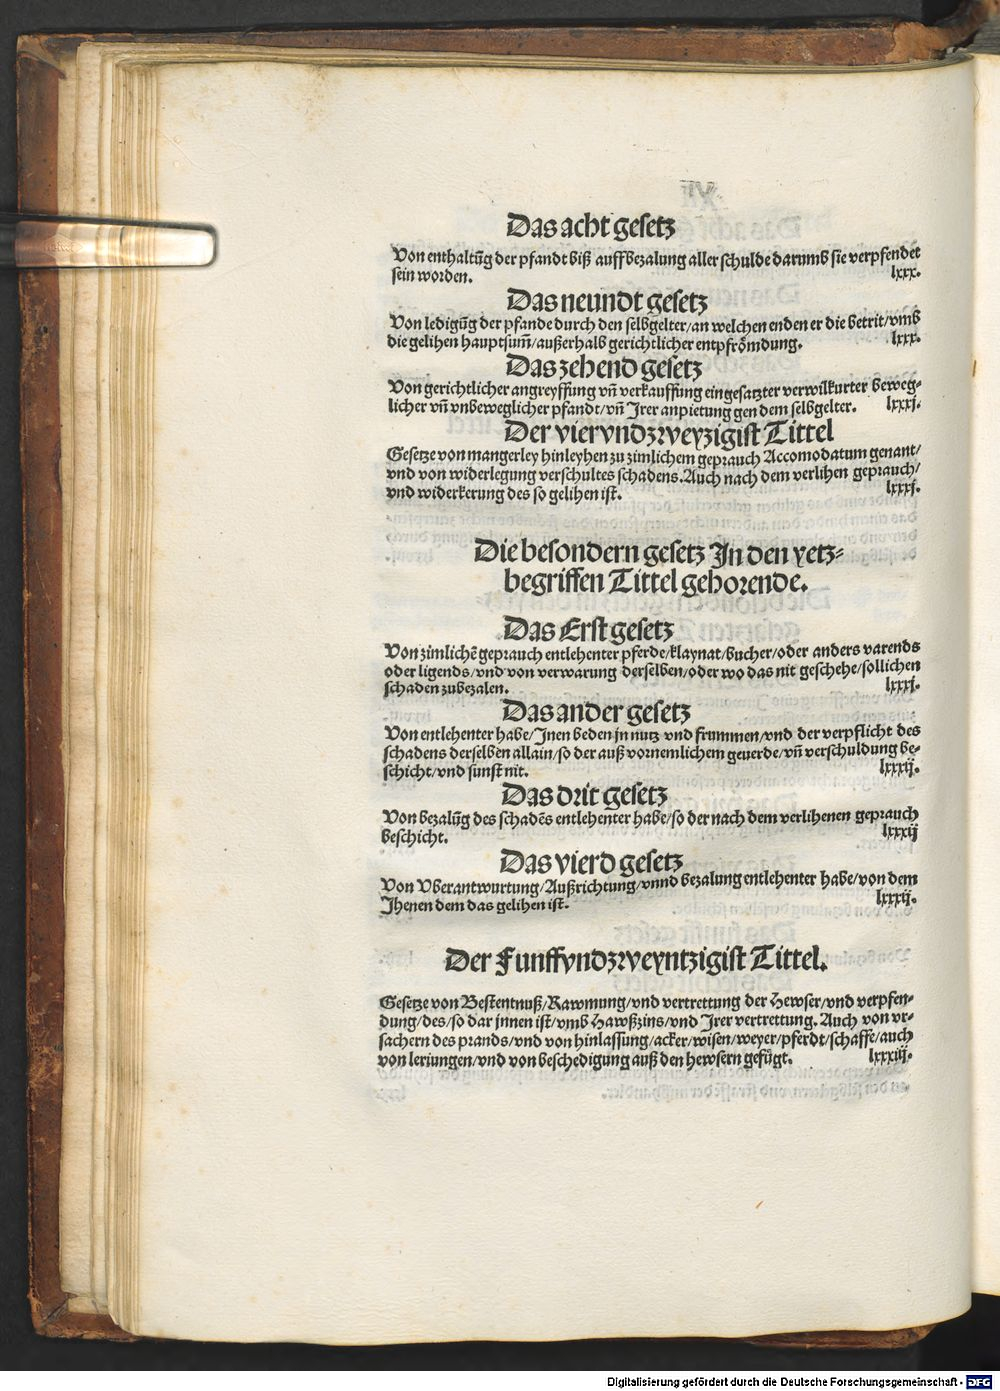 Das acht gesetz
Von enthaltūg der pfandt biß auffbezalung aller schulde darumb sie verpfendet
sein worden. lxxx.
Das neundt gesetz
Von ledigūg der pfande durch den selbgelter/an welchen enden er die betrit/vmb
die gelihen hauptsum̄/außerhalb gerichtlicher entpfrömdung. lxxx.
Das zehend gesetz
Von gerichtlicher angreyffung vn̄ verkauffung eingesatzter verwilkurter beweg-
licher vn̄ vnbeweglicher pfandt/vn̄ Irer anpietung gen dem selbgelter. lxxxj.
Der viervndzweyzigist Tittel
Gesetze von mangerley hinleyhen zu zimlichem geprauch Accomodatum genant/
vnd von widerlegung verschultes schadens. Auch nach dem verlihen geprauch/
vnd widerkerung des so gelihen ist. lxxxj.
Die besondern gesetz In den yetz-
begriffen Tittel gehorende.
Das Erst gesetz
Von zimlichē geprauch entlehenter pferde/klaynat/bucher/oder anders varends
oder ligends/vnd von verwarung derselben/oder wo das nit geschehe/sollichen
schaden zubezalen. lxxxj.
Das ander gesetz
Von entlehenter habe/Inen beden jn nutz vnd frummen/vnd der verpflicht des
schadens derselben allain/so der auß vornemlichem geuerde/vn̄ verschuldung be-
schicht/vnd sunst nit. lxxxij.
Das drit gesetz
Von bezalūg des schadēs entlehenter habe/so der nach dem verlihenen geprauch
beschicht. lxxxij
Das vierd gesetz
Von Vberantwurtung/Außrichtung/vnnd bezalung entlehenter habe/von dem
Ihenen dem das gelihen ist. lxxxij.
Der Funffvndzweyntzigist Tittel.
Gesetze von Bestentnuß/Rawmung/vnd vertrettung der Hewser/vnd verpfen-
dung/des/so dar jnnen ist/vmb Hawßzins/vnd Irer vertrettung. Auch von vr-
sachern des prands/vnd von hinlassung/acker/wisen/weyer/pferdt/schaffe/auch
von leriungen/vnd von beschedigung auß den hewsern gefügt. lxxxiij.
Digitalisierung gefördert durch die Deutsche Forschungsgemeinschaft - DFG